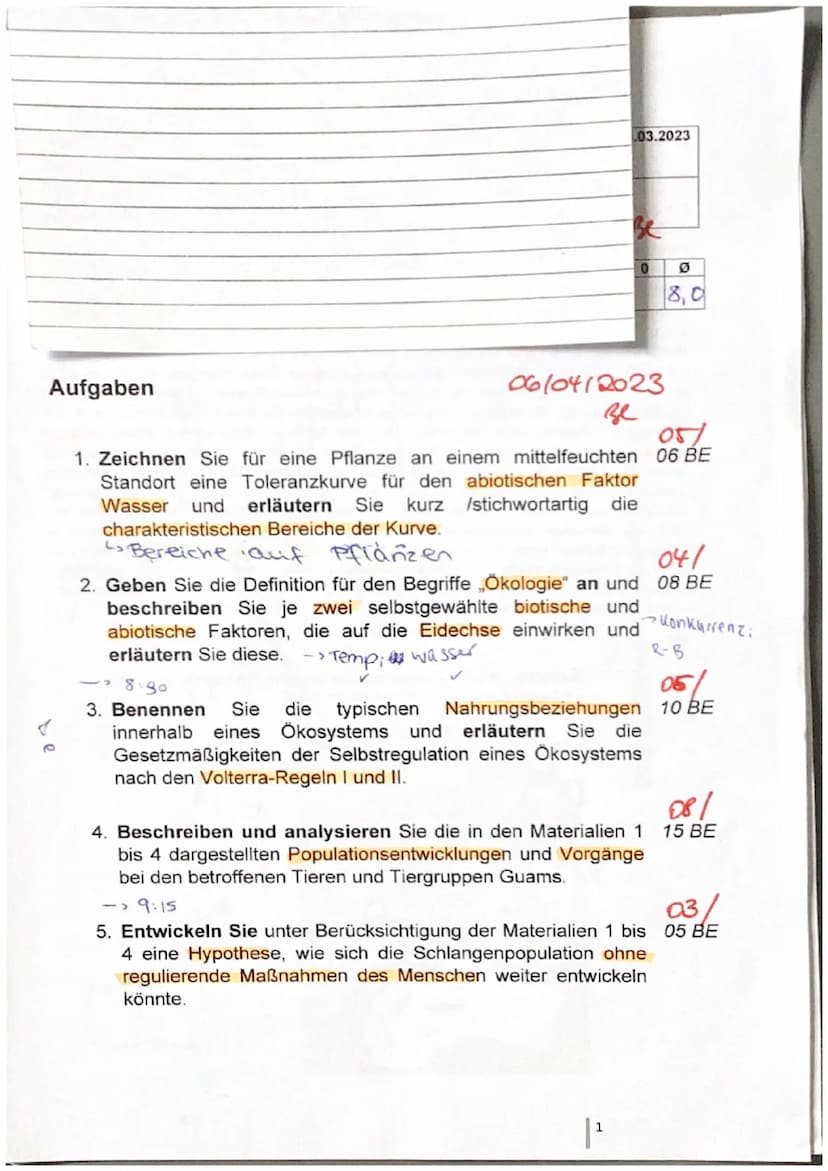 .03.2023
Be
0 Ø
8,0
Aufgaben
06/04/2023
Be
05/
1. Zeichnen Sie für eine Pflanze an einem mittelfeuchten 06 BE
Standort eine Toleranzkurve für den abiotischen Faktor
Wasser und erläutern Sie kurz /stichwortartig die
charakteristischen Bereiche der Kurve.
↳ Bereiche auf Pflanzen
04/
2. Geben Sie die Definition für den Begriffe „Ökologie“ an und 08 BE
beschreiben Sie je zwei selbstgewählte biotische und
abiotische Faktoren, die auf die Eidechse einwirken und → Konkurrenz;
erläutern Sie diese. -> Temp; Wasser R-B
-> 8:30
05/
3. Benennen Sie die typischen Nahrungsbeziehungen 10 BE
innerhalb eines Ökosystems und erläutern Sie die
Gesetzmäßigkeiten der Selbstregulation eines Ökosystems
nach den Volterra-Regeln I und II.
08/
4. Beschreiben und analysieren Sie die in den Materialien 1 15 BE
bis 4 dargestellten Populationsentwicklungen und Vorgänge
bei den betroffenen Tieren und Tiergruppen Guams.
-> 9:15
03/
5. Entwickeln Sie unter Berücksichtigung der Materialien 1 bis 05 BE
4 eine Hypothese, wie sich die Schlangenpopulation ohne
regulierende Maßnahmen des Menschen weiter entwickeln
könnte.
1